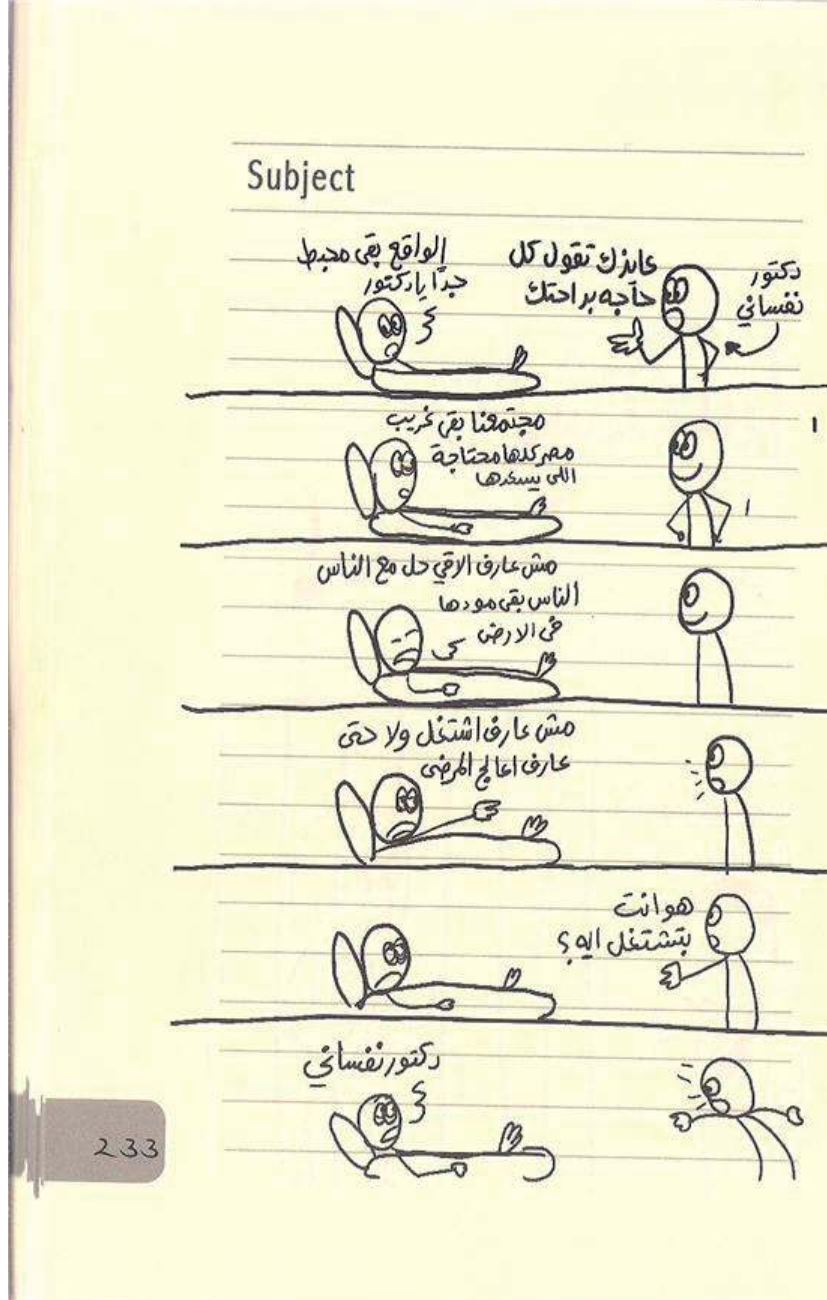 Subject
عايزك تقول كل
حاجه براحتك
دكتور
نفساني
الواقع بقى محبط
جدًا يا دكتور
مجتمعنا بقى غريب
مصر كلها محتاجة
اللى يسعدها
مش عارف الاقي حل مع الناس
الناس بقى مودها
فى الارض
مش عارف اشتغل ولا حتى
عارف اعالج المرضى
هو انت
بتشتغل ايه؟
دكتور نفساني
233